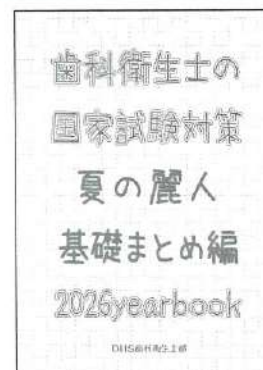 歯科衛生士の
国家試験対策
夏の麗人
基礎まとめ編
2026yearbook
DHS歯科衛生士部